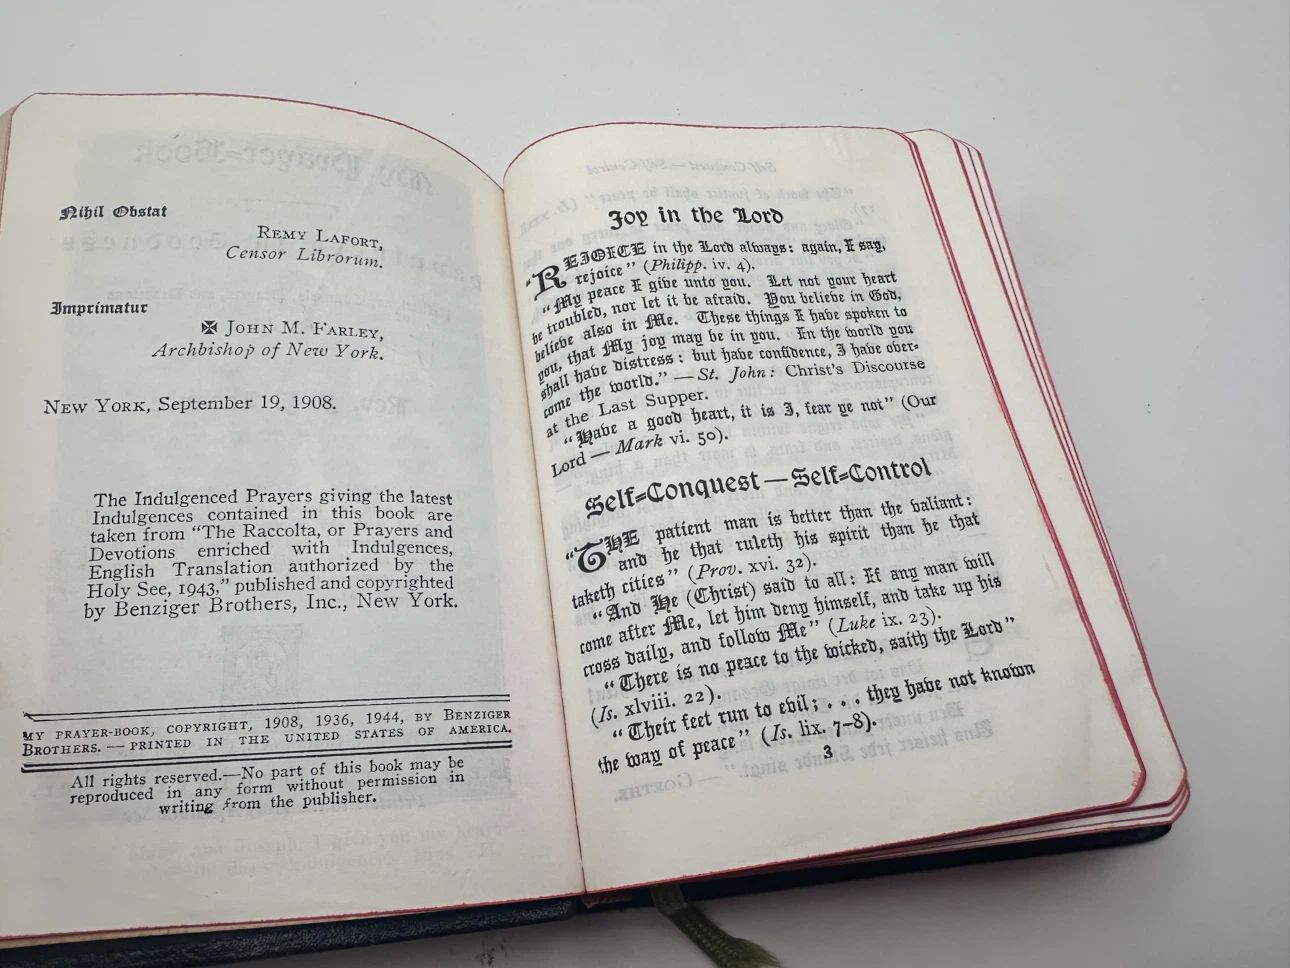 Nihil Obstat
REMY LAFORT,
Censor Librorum.
Imprimatur
✠ JOHN M. FARLEY,
Archbishop of New York.
NEW YORK, September 19, 1908.
The Indulgenced Prayers giving the latest
Indulgences contained in this book are
taken from "The Raccolta, or Prayers and
Devotions enriched with Indulgences,
English Translation authorized by the
Holy See, 1943," published and copyrighted
by Benziger Brothers, Inc., New York.
MY PRAYER-BOOK, COPYRIGHT, 1908, 1936, 1944, BY BENZIGER
BROTHERS. — PRINTED IN THE UNITED STATES OF AMERICA.
All rights reserved.—No part of this book may be
reproduced in any form without permission in
writing from the publisher.
Joy in the Lord
"REJOICE in the Lord always: again, I say,
rejoice" (Philipp. iv. 4).
"My peace I give unto you. Let not your heart
be troubled, nor let it be afraid. You believe in God,
believe also in Me. These things I have spoken to
you, that My joy may be in you. In the world you
shall have distress: but have confidence, I have over-
come the world." — St. John: Christ's Discourse
at the Last Supper.
"Have a good heart, it is I, fear ye not" (Our
Lord — Mark vi. 50).
Self-Conquest — Self-Control
"THE patient man is better than the valiant:
and he that ruleth his spirit than he that
taketh cities" (Prov. xvi. 32).
"And He (Christ) said to all: If any man will
come after Me, let him deny himself, and take up his
cross daily, and follow Me" (Luke ix. 23).
"There is no peace to the wicked, saith the Lord"
(Is. xlviii. 22).
"Their feet run to evil; . . . they have not known
the way of peace" (Is. lix. 7–8).
3